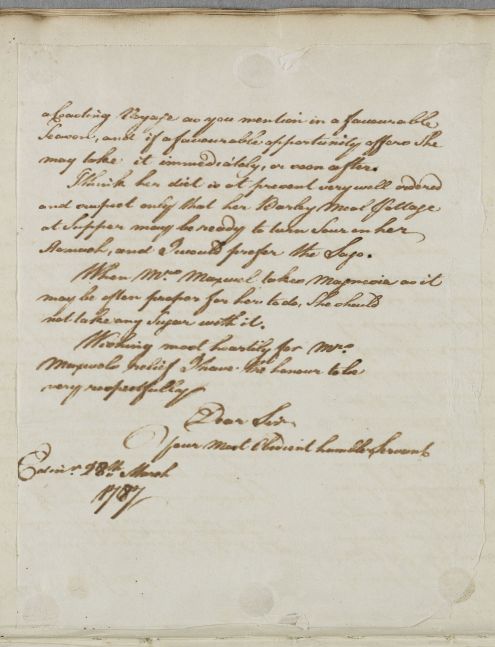 a Coasting Voyage as you mention in a favourable
Season, and if a favourable opportunity offers She
may take it immediately, or soon after.
I think her diet is at present very well ordered
and suspect only that her Barley Meal Pottage
at Supper may be ready to turn Sour in her
Stomach, and I would prefer the Sago.
When Mrs Maxwel takes Magnesia as it
may be often proper for her to do, She should
not take any Sugar with it.
Wishing most heartily for Mrs
Maxwels relief I have the honour to be
very respectfully
Dear Sir
your Most Obedient humble Servant
Edinr 28th March
1787